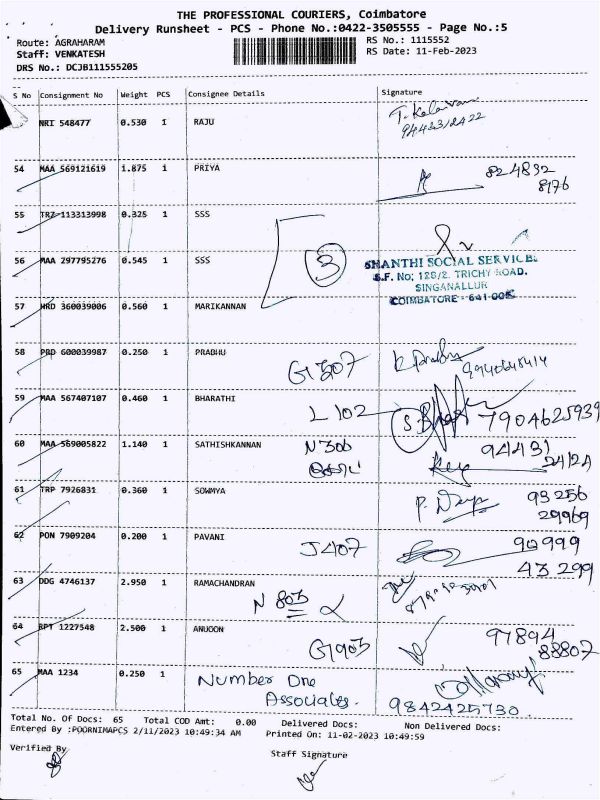 THE PROFESSIONAL COURIERS, Coimbatore
Delivery Runsheet - PCS - Phone No.:0422-3505555 - Page No.:5
Route: AGRAHARAM
RS No.: 1115552
Staff: VENKATESH
RS Date: 11-Feb-2023
DRS No.: DCJB111555205
S No Consignment No Weight PCS Consignee Details Signature
NRI 548477 0.530 1 RAJU
54 MAA 569121619 1.875 1 PRIYA 824832
8176
55 TRZ 113313998 0.325 1 SSS
3
56 MAA 297795276 0.545 1 SSS
SHANTHI SOCIAL SERVICE.
S.F. No; 128/2. TRICHY ROAD.
SINGANALLUR
COIMBATORE - 641 005
57 HRD 360039006 0.560 1 MARIKANNAN
58 PRD 600039987 0.250 1 PRABHU
59 MAA 567407107 0.460 1 BHARATHI L 102 7904625939
60 MAA 569005822 1.140 1 SATHISHKANNAN N 306 94431
24124
61 TRP 7926831 0.360 1 SOWMYA 93256
29969
62 PON 7909204 0.200 1 PAVANI J407 90999
43299
63 DDG 4746137 2.950 1 RAMACHANDRAN N 803
64 RPT 1227548 2.500 1 ANUGON G1903 97894
88807
65 MAA 1234 0.250 1 Number One
Associates. 9842425730
Total No. Of Docs: 65 Total COD Amt: 0.00 Delivered Docs: Non Delivered Docs:
Entered By :POORNIMAPCS 2/11/2023 10:49:34 AM Printed On: 11-02-2023 10:49:59
Verified By
Staff Signature